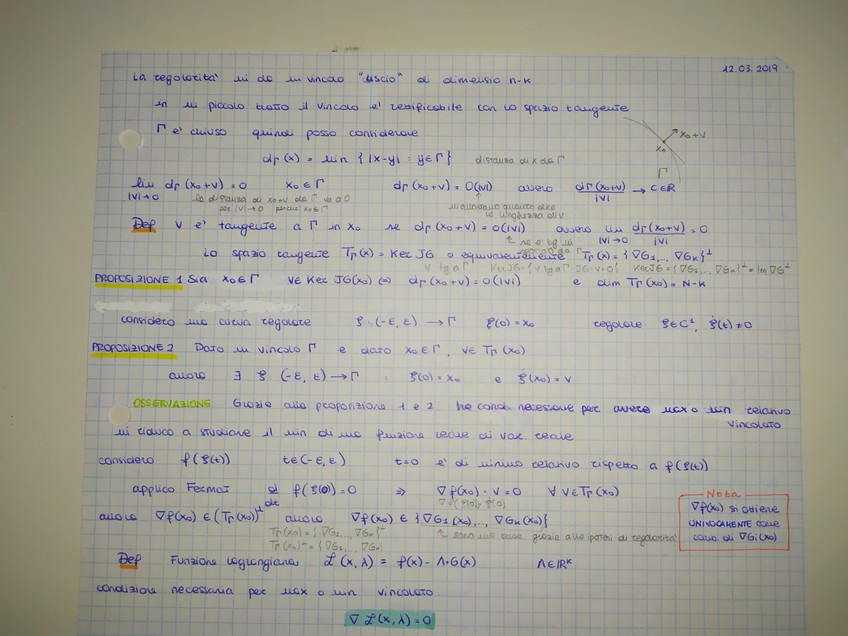 12.03.2019
La regolarita' mi da un vincolo "liscio" di dimensio n-k
in un piccolo tratto il vincolo e' rettificabile con lo spazio tangente
Γ e' chiuso quindi posso considerare
x₀+v
x₀
Γ
dΓ(x) = min { |x-y| : y∈Γ } distanza di x da Γ
lim dΓ(x₀+v) = 0 x₀∈Γ dΓ(x₀+v) = O(|v|) ovvero dΓ(x₀+v)/|v| → C∈R
|v|→0 la distanza di x₀+v da Γ va a 0
per |v|→0 perche' x₀∈Γ
Def v e' tangente a Γ in x₀ se dΓ(x₀+v) = o(|v|) ovvero lim dΓ(x₀+v)/|v| = 0
|v|→0
Lo spazio tangente TΓ(x) = Ker JG o equivalentemente TΓ(x) = { ∇G₁, ..., ∇Gₖ }⊥
v tg a Γ KerJG = { v tg a Γ JG·v=0 } KerJG = { ∇G₁, ... ∇Gₖ }⊥ = Im ∇G⊥
PROPOSIZIONE 1 Sia x₀∈Γ v∈Ker JG(x₀) ⇔ dΓ(x₀+v) = o(|v|) e dim TΓ(x₀) = N-k
considero una curva regolare ξ: (-ε, ε) → Γ ξ(0) = x₀ regolare: ξ∈C¹, ξ̇(t) ≠ 0
PROPOSIZIONE 2 Dato un vincolo Γ e dato x₀∈Γ, v∈TΓ(x₀)
allora ∃ ξ: (-ε, ε) → Γ : ξ(0) = x₀ e ξ̇(x₀) = v
OSSERVAZIONE Grazie alla proposizione 1 e 2 ho cond. necessarie per avere max o min relativo
vincolato
mi riduco a studiare il min di una funzione reale di var. reale
considero f(ξ(t)) t∈(-ε, ε) t=0 e' di minimo relativo rispetto a f(ξ(t))
applico Fermat d/dt f(ξ(0)) = 0 ⇒ ∇f(x₀)·v = 0 ∀ v∈TΓ(x₀)
∇f(ξ(0))·ξ̇(0)
allora ∇f(x₀) ∈ (TΓ(x₀))⊥ allora ∇f(x₀) ∈ { ∇G₁(x₀), ..., ∇Gₖ(x₀) }
TΓ(x₀) = { ∇G₁, ..., ∇Gₖ }⊥ sono una base grazie alla ipotesi di regolarita'
TΓ(x₀)⊥ = { ∇G₁, ..., ∇Gₖ }
Nota
∇f(x₀) si ottiene
UNIVOCAMENTE come
comb. di ∇Gi(x₀)
Def Funzione lagrangiana ℒ(x, λ) = f(x) - Λ·G(x) Λ∈IRᵏ
condizione necessaria per max o min vincolato
∇ℒ(x, λ) = 0